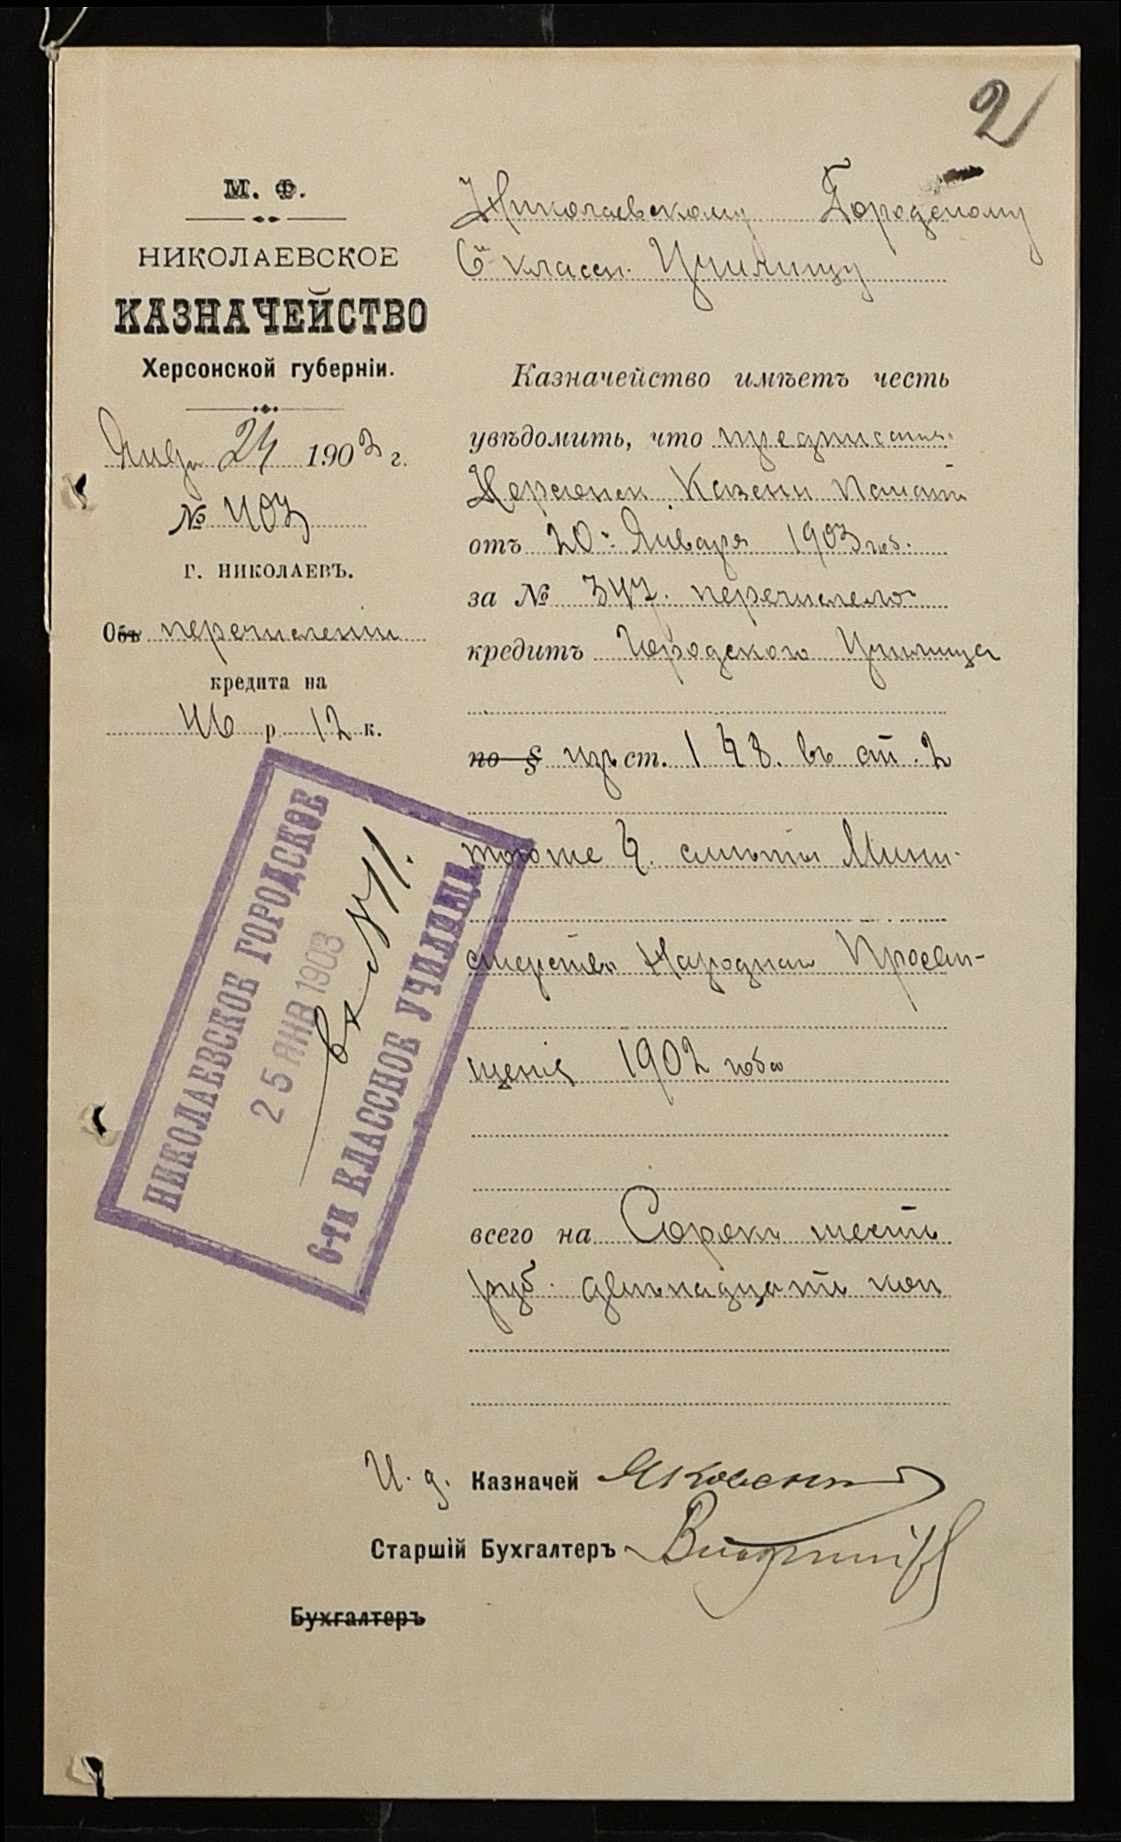 2
М. Ф.
НИКОЛАЕВСКОЕ
КАЗНАЧЕЙСТВО
Херсонской губерніи.
Янв. 24 1903 г.
№ 403
Г. НИКОЛАЕВЪ.
Объ перечисленіи
кредита на
46 р. 12 к.
Николаевскому Городскому
6й классн. Училищу
Казначейство имѣетъ честь
увѣдомить, что предписан.
Херсонск. Казенн Палаты
отъ 20го Января 1903 год.
за № 347. перечислено
кредитъ Городского Училища
по § изъ ст. 1 § 8. въ ст. 2
тогоже §. смѣты Мини-
стерства Народнаго Просвѣ-
щенія 1902 года
всего на Сорокъ шесть
руб. двѣнадцать коп
НИКОЛАЕВСКОЕ ГОРОДСКОЕ
25 ЯНВ 1903
вх № 11.
6-ТИ КЛАССНОЕ УЧИЛИЩЕ
И. д. Казначей
Старшій Бухгалтеръ
Бухгалтеръ